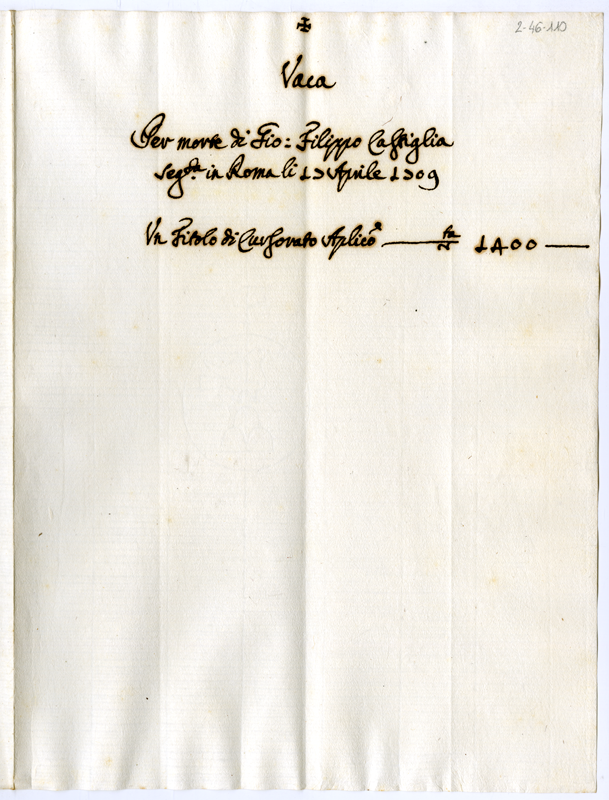 ✠
2-46-110
Vaca
Per morte di Gio: Filippo Castiglia
seg.ta in Roma li 13 Aprile 1709
Un Titolo di Cursorato Aplico
1400